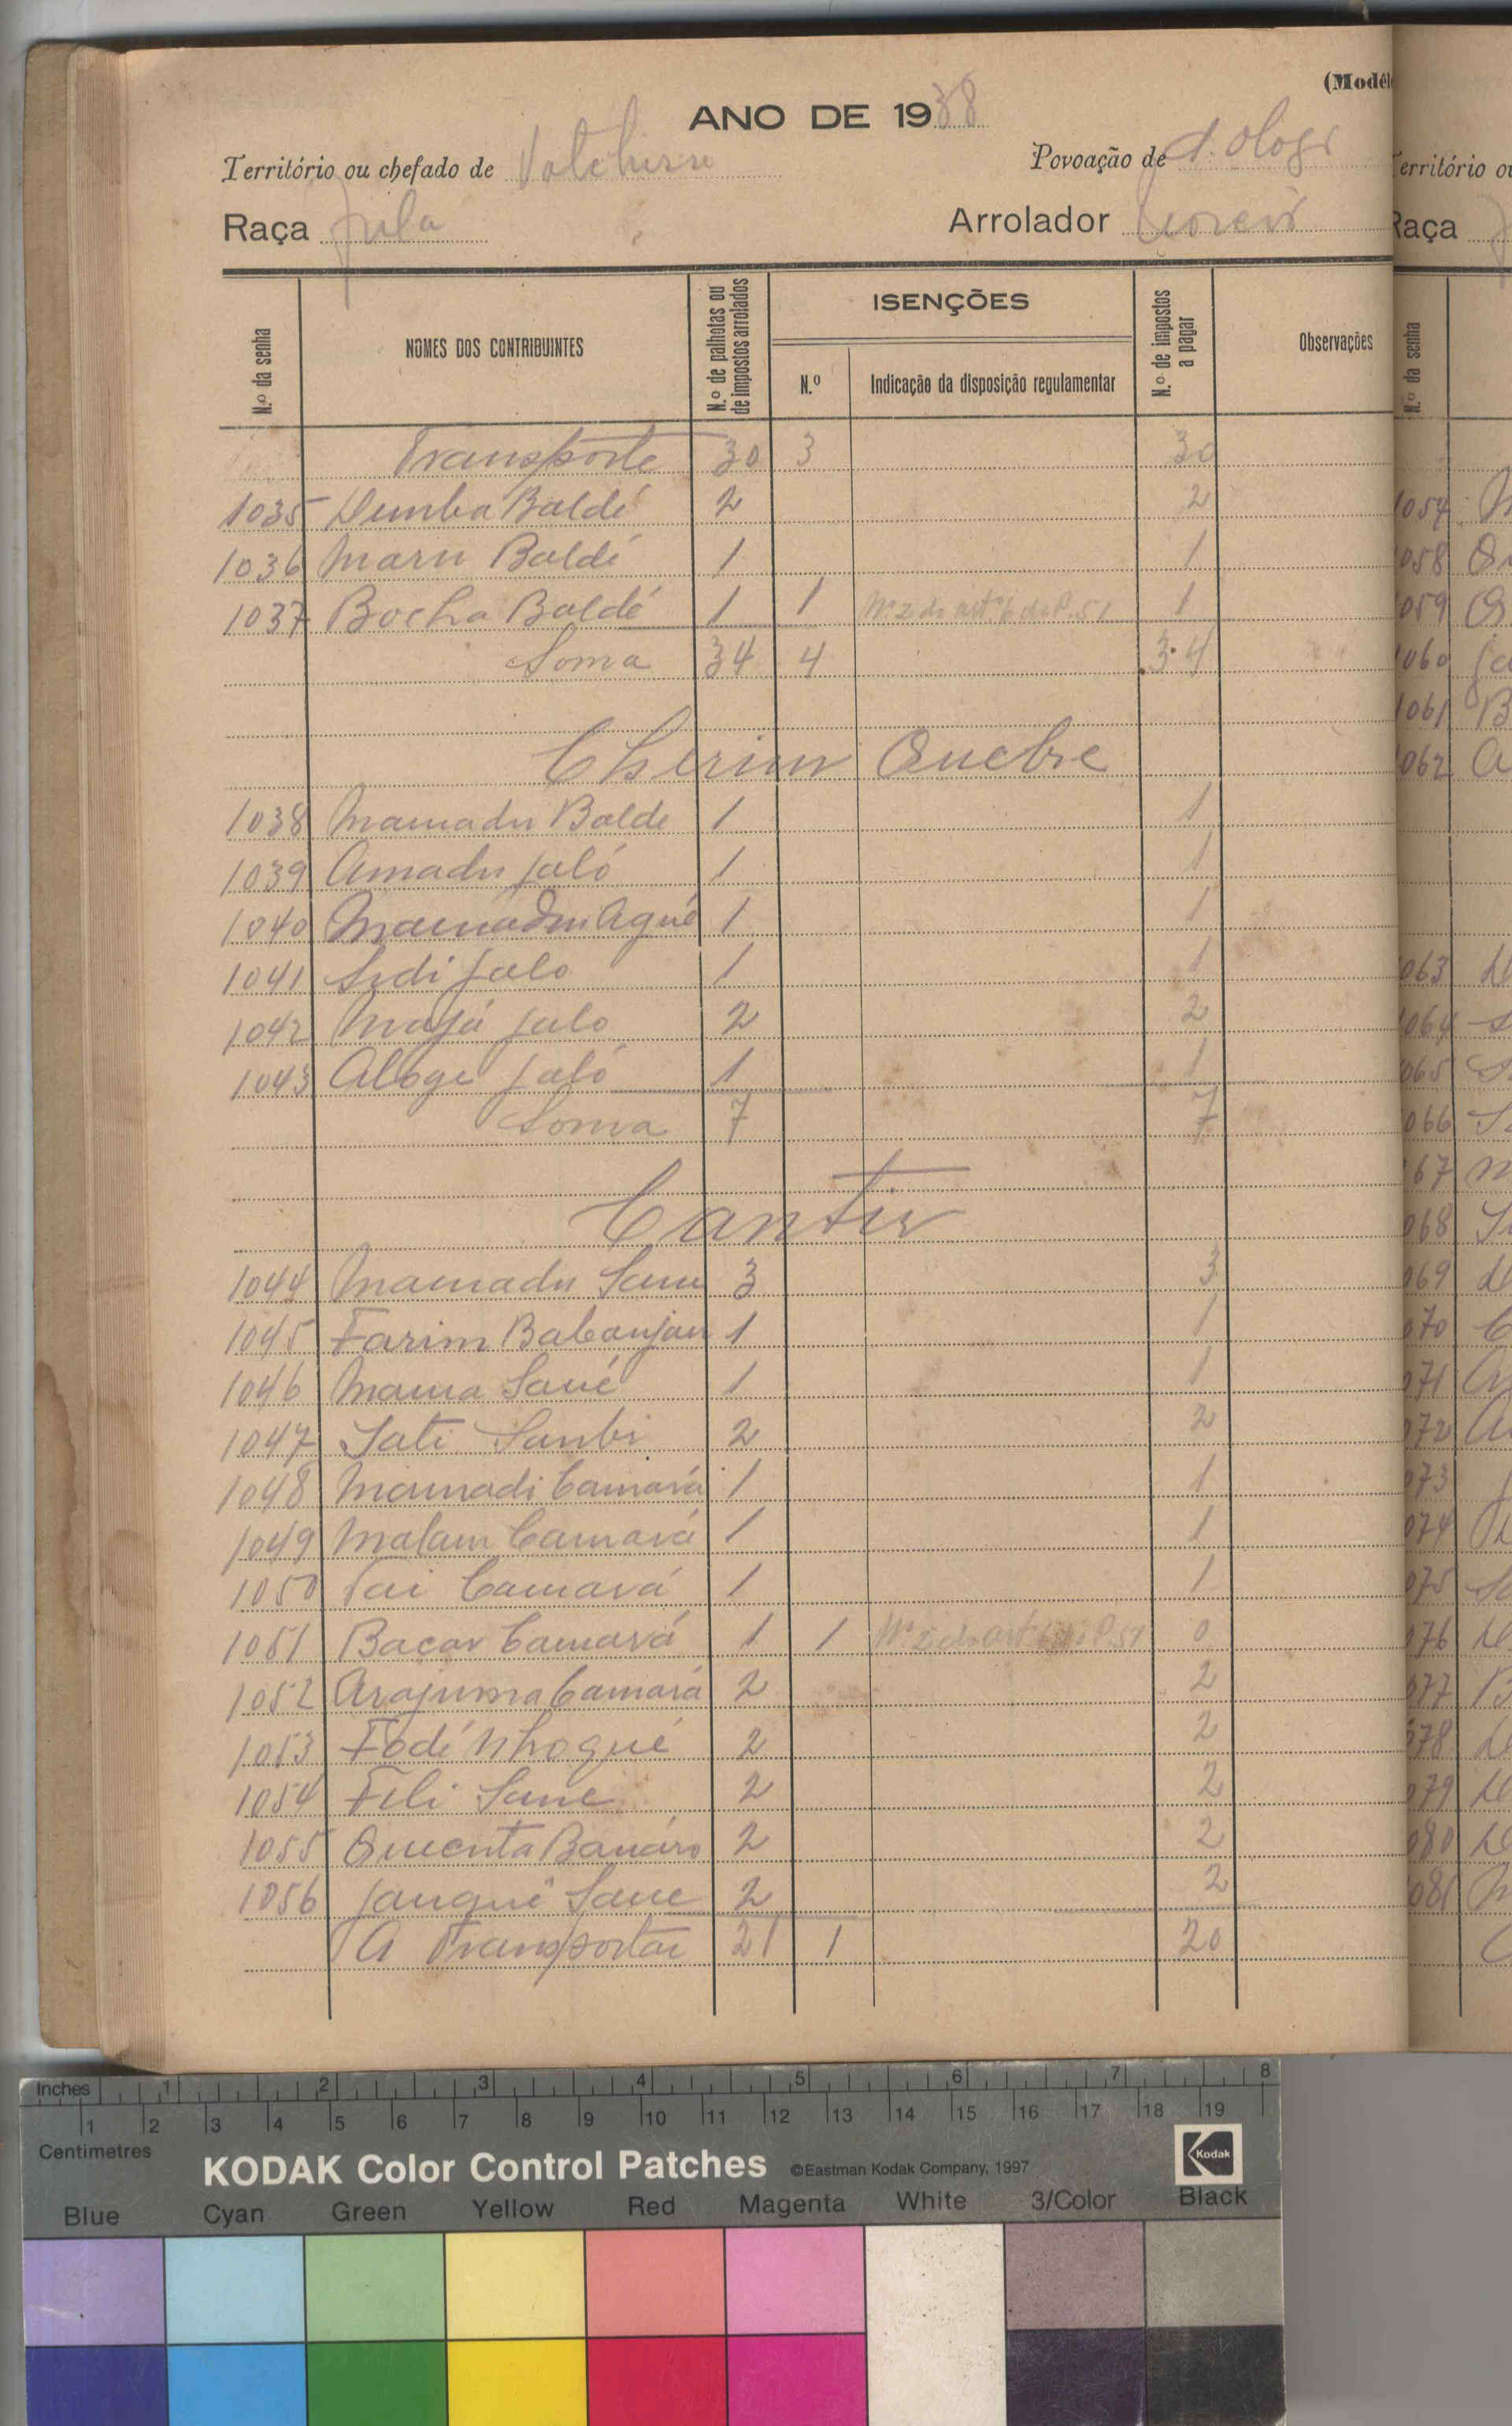 (Modêl
ANO DE 1938
Território ou chefado de
Povoação de
Raça Fula
Arrolador
N.º da senha
NOMES DOS CONTRIBUINTES
N.º de palhotas ou de impostos arrolados
ISENÇÕES
N.º
Indicação da disposição regulamentar
N.º de impostos a pagar
Observações
Transporte 30 3 30
1035 Demba Baldé 2 2
1036 Maru Baldé 1 1
1037 Bocha Baldé 1 1 Nº 2 do artº 6 do P. 51 1
Soma 34 4 34
Cherim Quebre
1038 Mamadu Balde 1 1
1039 Amadu Jaló 1 1
1040 Mamadu Agué 1 1
1041 Sidi Jalo 1 1
1042 Majá Jalo 2 2
1043 Aloge Jaló 1 1
Soma 7 7
Cantir
1044 Mamadu Sane 3 3
1045 Farim Babanjan 1 1
1046 Mama Sané 1 1
1047 Sati Sanbi 2 2
1048 Mamadi Camará 1 1
1049 Malam Camará 1 1
1050 Fai Camará 1 1
1051 Bacar Camará 1 1 Nº 2 do artº P. 51 0
1052 Arajuma Camará 2 2
1053 Fodé Nhogué 2 2
1054 Fili Sane 2 2
1055 Quenta Banáro 2 2
1056 Janqué Sane 2 2
A Transportar 21 1 20
erritório ou
Raça
N.º da senha
1057
1058
1059
1060
1061 B
1062 A
063
064
065
066
067
068
069
070
071
072
073
074
075
076
077
078
079
080
081
Inches 1 2 3 4 5 6 7 8
1 2 3 4 5 6 7 8 9 10 11 12 13 14 15 16 17 18 19
Centimetres
KODAK Color Control Patches ©Eastman Kodak Company, 1997 Kodak
Blue Cyan Green Yellow Red Magenta White 3/Color Black